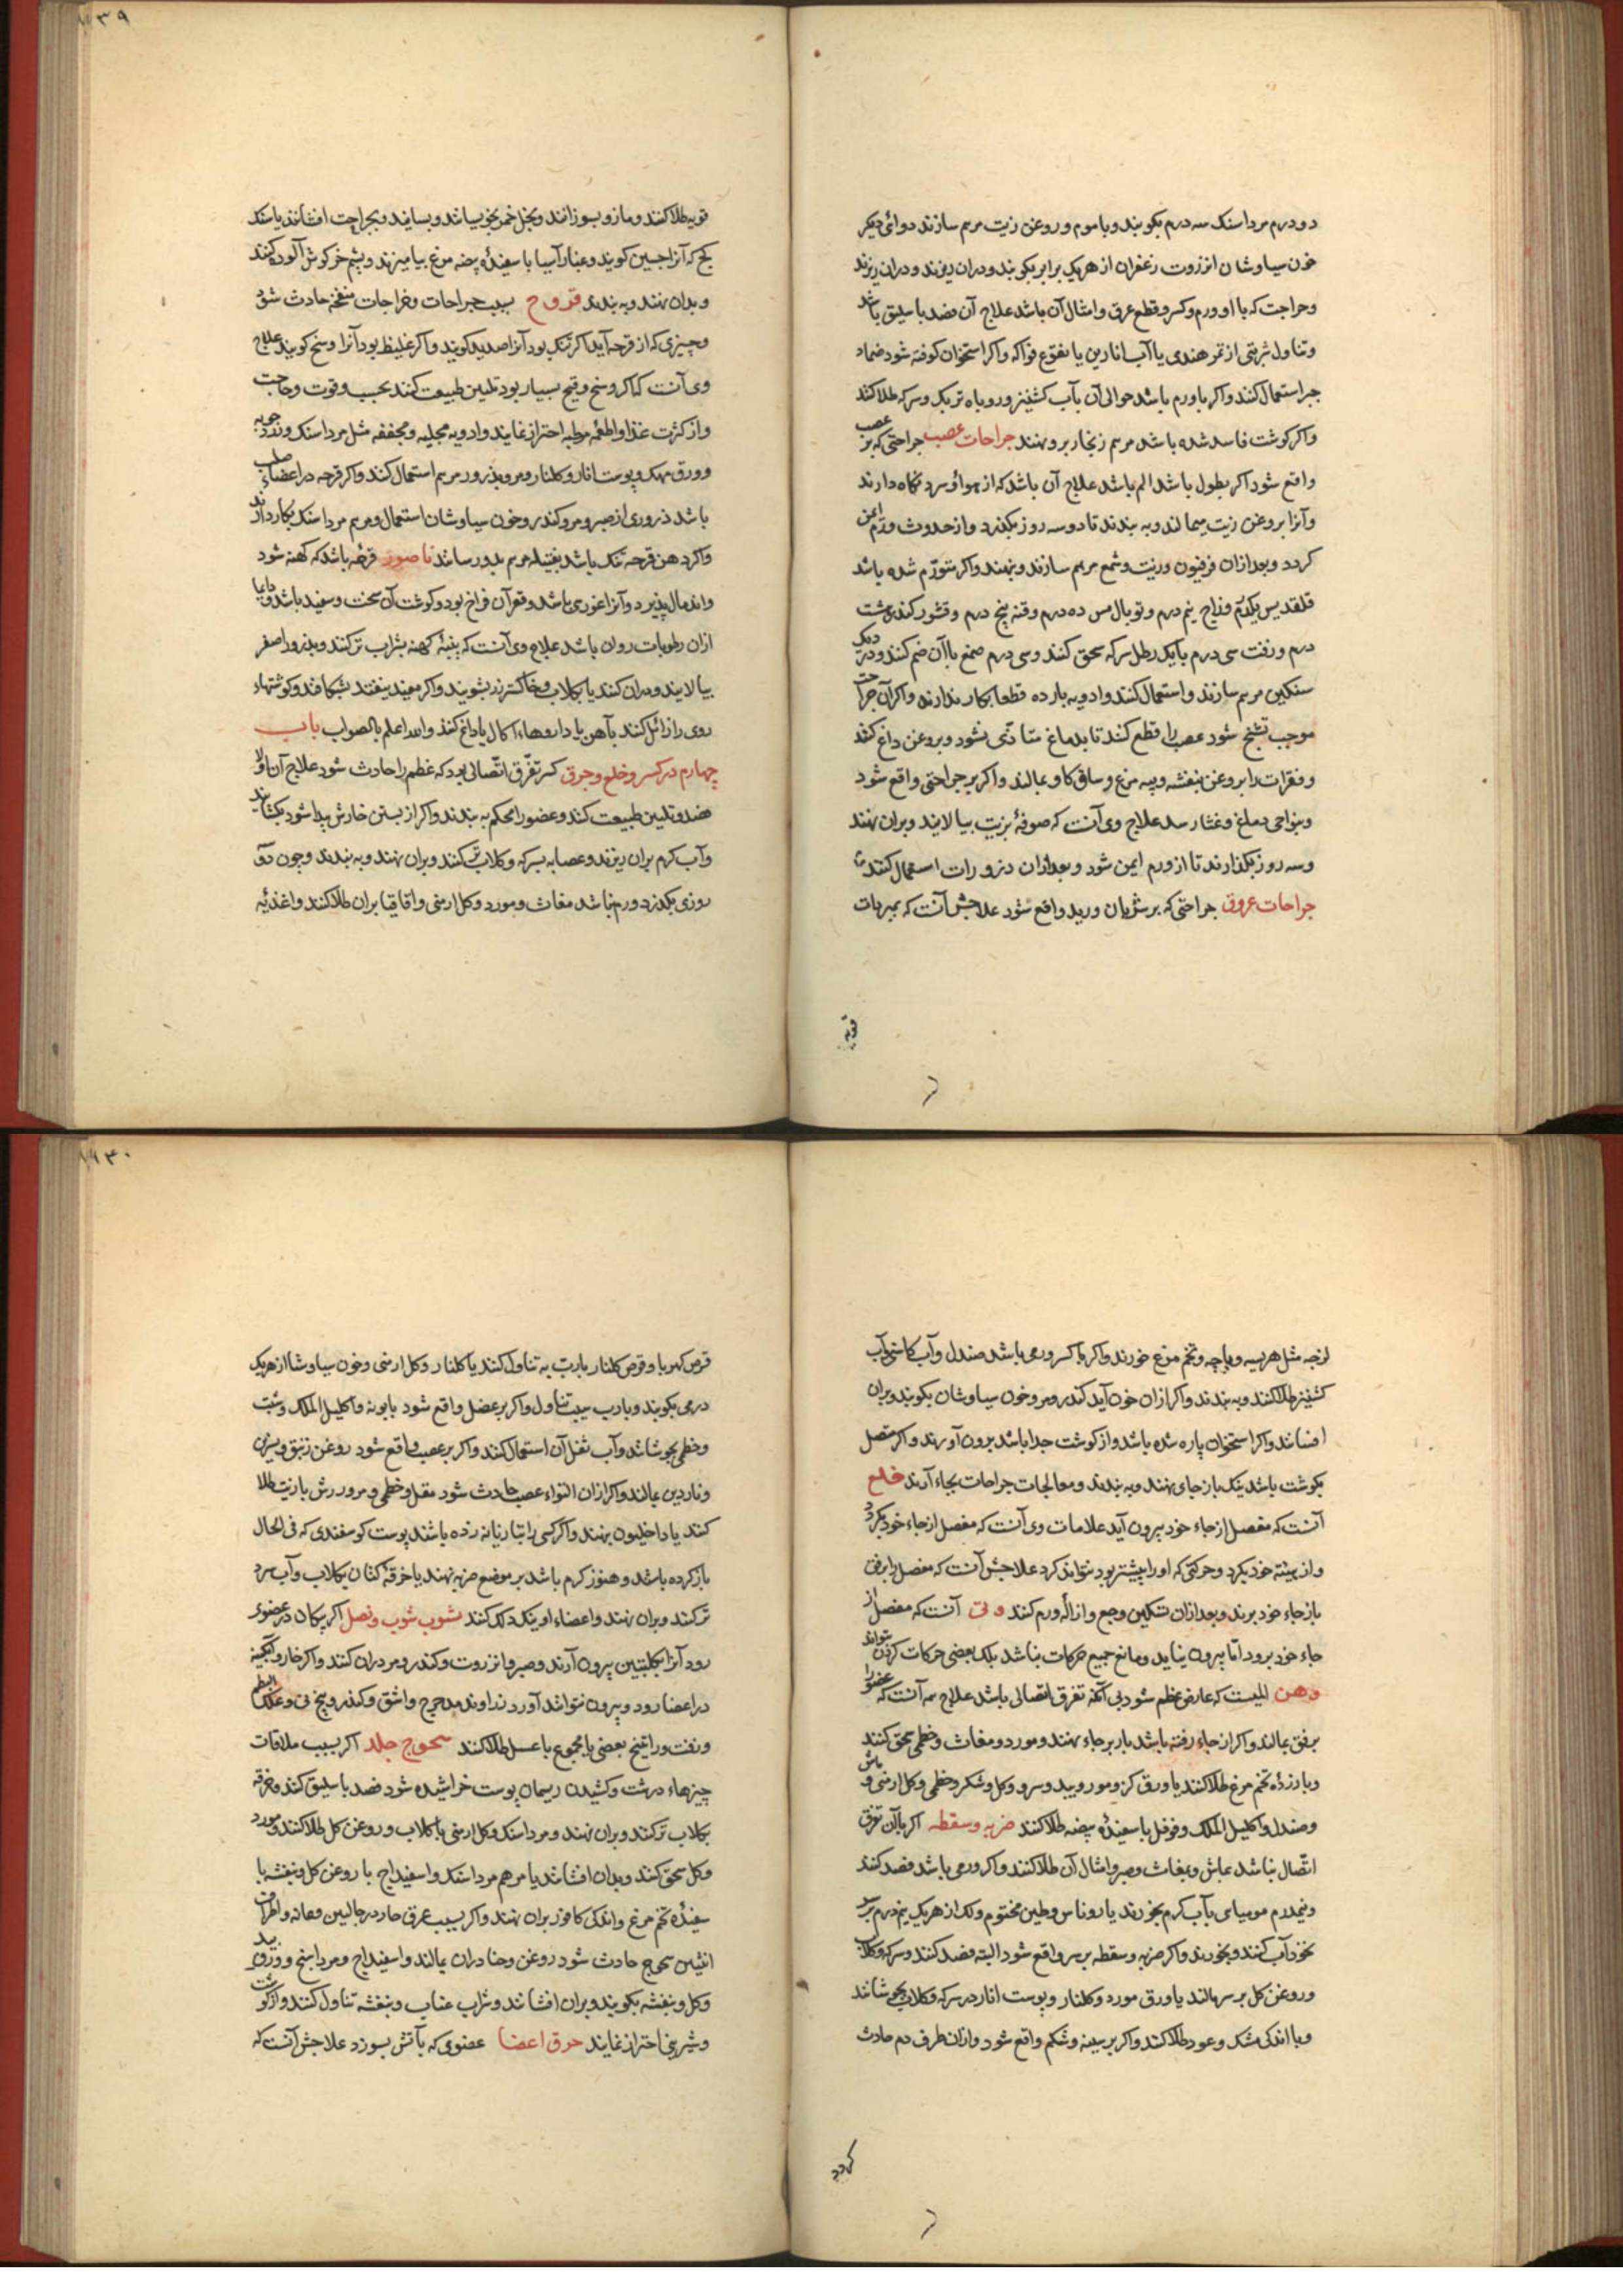 دو درم مرداسنک سه درم بکوبند و با موم و روغن زیت مرهم سازند دوائی دیکر
خون سیاوشان انزروت زعفران از هریک برابر بکوبند و دران ریزند
وجراحت که با او ورم و کسر و قطع عرق و امثال آن باشد علاج آن فصد باسلیق باشد
و تناول شربتی از تمر هندی یا آب انارین یا نقوع فواکه و اکر استخوان کوفته شود ضماد
جبر استعمال کنند و اکر با ورم باشد حوالی آن بآب کشنیز و روباه تربک و سرکه طلا کنند
و اکر کوشت فاسد شده باشد مرهم زنجار برو نهند جراحات عصب جراحتی که بر عصب
واقع شود اکر بطول باشد الم باشد علاج آن باشد که از هوا و سرد نکاه دارند
و آنرا بروغن زیت میمالند و به بندند تا دو سه روز بکذرد و از حدوث ورم ایمن
کردد و بعد ازان فرفیون و زیت و شمع مرهم سازند و بنهند و اکر متورّم شده باشد
قلقدیس یکدرم و زاج نیم درم و توبال مس ده درم و قنه پنج درم و قشور کندر هشت
درم و زفت سی درم با یک رطل سرکه سحق کنند و سی درم صمغ با آن ضم کنند و در دیک
سنکین مرهم سازند و استعمال کنند و ادویه بارده قطعا بکار ندارند و اکر آن جراحت
موجب تشنج شود عصب را قطع کنند تا بدماغ متاذّی نشود و بروغن داغ کنند
و فقرات را بروغن بنفشه و پیه مرغ و ساق کاو بمالند و اکر بر جراحتی واقع شود
و بنواحی دماغ و غشا رسد علاج وی آنست که صوفهٔ بزیت بیالایند و بران نهند
و سه روز بکذارند تا از ورم ایمن شود و بعد ازان ذرورات استعمال کنند
جراحات عروق جراحتی که بر شریان و ورید واقع شود علاجش آنست که بمبردات
قویه
قویه طلا کنند و مازو بسوزانند و بخل خمر بخوبسانند و بسایند و بجراحت افشانند یا سنک
کج که آنرا جبسین کویند و غبار آسیا با سفیدهٔ بیضه مرغ بیامیزند و پشم خرکوش آلوده کنند
و بدان نهند و به بندند قروح بسبب جراحات و خراجات منفجّه حادث شود
و چیزی که از قرحه آید اکر تنک بود آنرا صدید کویند و اکر غلیظ بود آنرا وسخ کویند علاج
وی آنست که اکر وسخ و قیح بسیار بود تلیین طبیعت کنند بحسب وقوت و حاجت
و از کثرت غذا و اطعمه مرطبه احتراز نمایند و ادویه مجلیه و مجففه مثل مرداسنک و زردچوبه
و ورق مهک و پوست انار و کلنار و مر و بذرور مرهم استعمال کنند و اکر قرحه در اعضاء صلب
باشد ذروری از صبر و مر و کندر و خون سیاوشان استعمال و مرهم مرداسنک بکار دارند
و اکر دهن قرحه تنک باشد بفتیله مرهم بدو رسانند ناصور قرحه باشد که کهنه شود
و اندمال پذیرد و آنرا غوری باشد و قعر آن فراخ بود و کوشت آن سخت و سفید باشد و دایما
ازان رطوبات روان باشد علاج وی آنست که پنبهٔ کهنه بشراب تر کنند و بذرور اصفر
بیالایند و دران کنند یا بکلاب و خاکستر رز بشویند و اکر مفید نیفتد بشکافند و کوشتهاء
روی را زائل کنند بآهن یا داروهاء اکال یا داغ کنند و الله اعلم بالصواب باب
چهارم در کسر و خلع و حرق کسر تفرّق اتّصالی بود که عظم را حادث شود علاج آن اولا
فصد و تلیین طبیعت کنند و عضو را محکم به بندند و اکر از بستن خارش پیدا شود بکشایند
و آب کرم بران ریزند و عصابه بسرکه و کلاب تر کنند و بران نهند و به بندند و چون دو
روزی بکذرد و ورم نباشد مغاث و مورد و کل ارمنی و اقاقیا بران طلا کنند و اغذیه
لزجه مثل هریسه و پاچه و تخم مرغ خورند و اکر با کسر ورمی باشد صندل و آب کاسنی و آب
کشنیز طلا کنند و به بندند و اکر ازان خون آید کندر و مر و خون سیاوشان بکوبند و بران
افشانند و اکر استخوان پاره شده باشد و از کوشت جدا باشد برون آورند و اکر متصل
بکوشت باشد نیک باز جای نهند و به بندند و معالجات جراحات بجاء آرند خلع
آنست که مفصل از جاء خود بیرون آید علامات وی آنست که مفصل از جاء خود بکردد
و از هیئته خود بکردد و حرکتی که او را پیشتر بود نتواند کرد علاجش آنست که مفصل را برفق
باز جاء خود برند و بعد ازان تسکین وجع و ازالهٔ ورم کنند وثی آنست که مفصل از
جاء خود برود امّا بیرون نیاید و مانع جمیع حرکات نباشد بلک بعضی حرکات کردن بتواند
وهن المیست که عارض عظم شود بی آنکه تفرق اتصالی باشد علاج همه آنست که عضو را
برفق بمالند و اکر از جاء رفته باشد باز بر جاء نهند و مورد و مغاث و خطمی سحق کنند
و با زردهٔ تخم مرغ طلا کنند یا ورق کز و مورد و بید و سرو و کل و شکر و خطمی و کل ارمنی و ماش
و صندل و اکلیل الملک و فوفل با سفیدهٔ بیضه طلا کنند ضربه و سقطه اکر با آن تفرق
اتّصال نباشد بماش و مغاث و صبر و امثال آن طلا کنند و اکر ورمی باشد فصد کنند
و نیم درم مومیائی بآب کرم بخورند یا روناس و طین مختوم و لک از هریک نیم درم بر
نخود آب کنند و بخورند و اکر ضربه و سقطه بر سر واقع شود البته فصد کنند و سرکه و کلاب
و روغن کل بر سر مالند یا ورق مورد و کلنار و پوست انار در سرکه و کلاب بجوشانند
و با اندکی مشک و عود طلا کنند و اکر بر سینه و شکم واقع شود و ازان طرف دم حادث
کردد
قرص کهربا و قرص کلنار با ربّ به تناول کنند یا کلنار و کل ارمنی و خون سیاوشان از هریک
درمی بکوبند و با رب سیب تناول و اکر بر عضل واقع شود بابونه و اکلیل الملک و شبت
و خطمی بجوشانند و آب ثفل آن استعمال کنند و اکر بر عصب واقع شود روغن زنبق
و ناردین بمالند و اکر ازان التواء عصب حادث شود مقل و خطمی و مر و بازیت طلا
کنند یا داخلیون بنهند و اکر کسی را بتازیانه زده باشند پوست کوسفندی که فی الحال
باز کرده باشد و هنوز کرم باشد بر موضع ضربه نهند یا خرقهٔ کتان بکلاب و آب سرد
تر کنند و بران نهند و اعضاء او نیک دلک کنند نشوب شوب و نصل اکر پیکان در عضوی
رود آنرا بکلبتین بیرون آرند و صبر و انزروت و کندر و مر دران کنند و اکر خار و آبکینه
در اعضا رود و بیرون نتوانند آورد زراوند مدحرج و اشق و کندر و بیخ نی و علک البطم
و زفت و راتینج بعضی یا مجموع با عسل طلا کنند سحوج جلد اکر بسبب ملاقات
چیزهاء درشت و کشیدن ریسمان پوست خراشیده شود فصد باسلیق کنند و خرقه
بکلاب تر کنند و بران نهند و مرداسنک و کل ارمنی با کلاب و روغن کل طلا کنند و مورد
و کل سحق کنند و بدان افشانند یا مرهم مرداسنک و اسفیداج با روغن کل و بنفشه با
سفیدهٔ تخم مرغ و اندکی کافور بران نهند و اکر بسبب عرق حاد در جالبین و عانه و اطراف
انثیین سحوج حادث شود روغن و حنا دران بمالند و اسفیداج و مرداسنج و ورق بید
و کل و بنفشه بکوبند و بران افشانند و شراب عناب و بنفشه تناول کنند و از کوشت
و شیرینی احتراز نمایند حرق اعضا عضوی که بآتش بسوزد علاجش آنست که